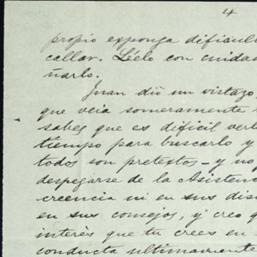 4
propio exponga dificul
callar. Léelo con cuidad
ñarlo.
Juan dió un vistazo
que veía someramente
sabes que es difícil verl
tiempo para buscarlo y
todos son pretextos — y no
despegarse de la Asistenc
creencia ni en sus dis
en sus consejos, y creo q
interés que tu crees en
conducta ultimamente